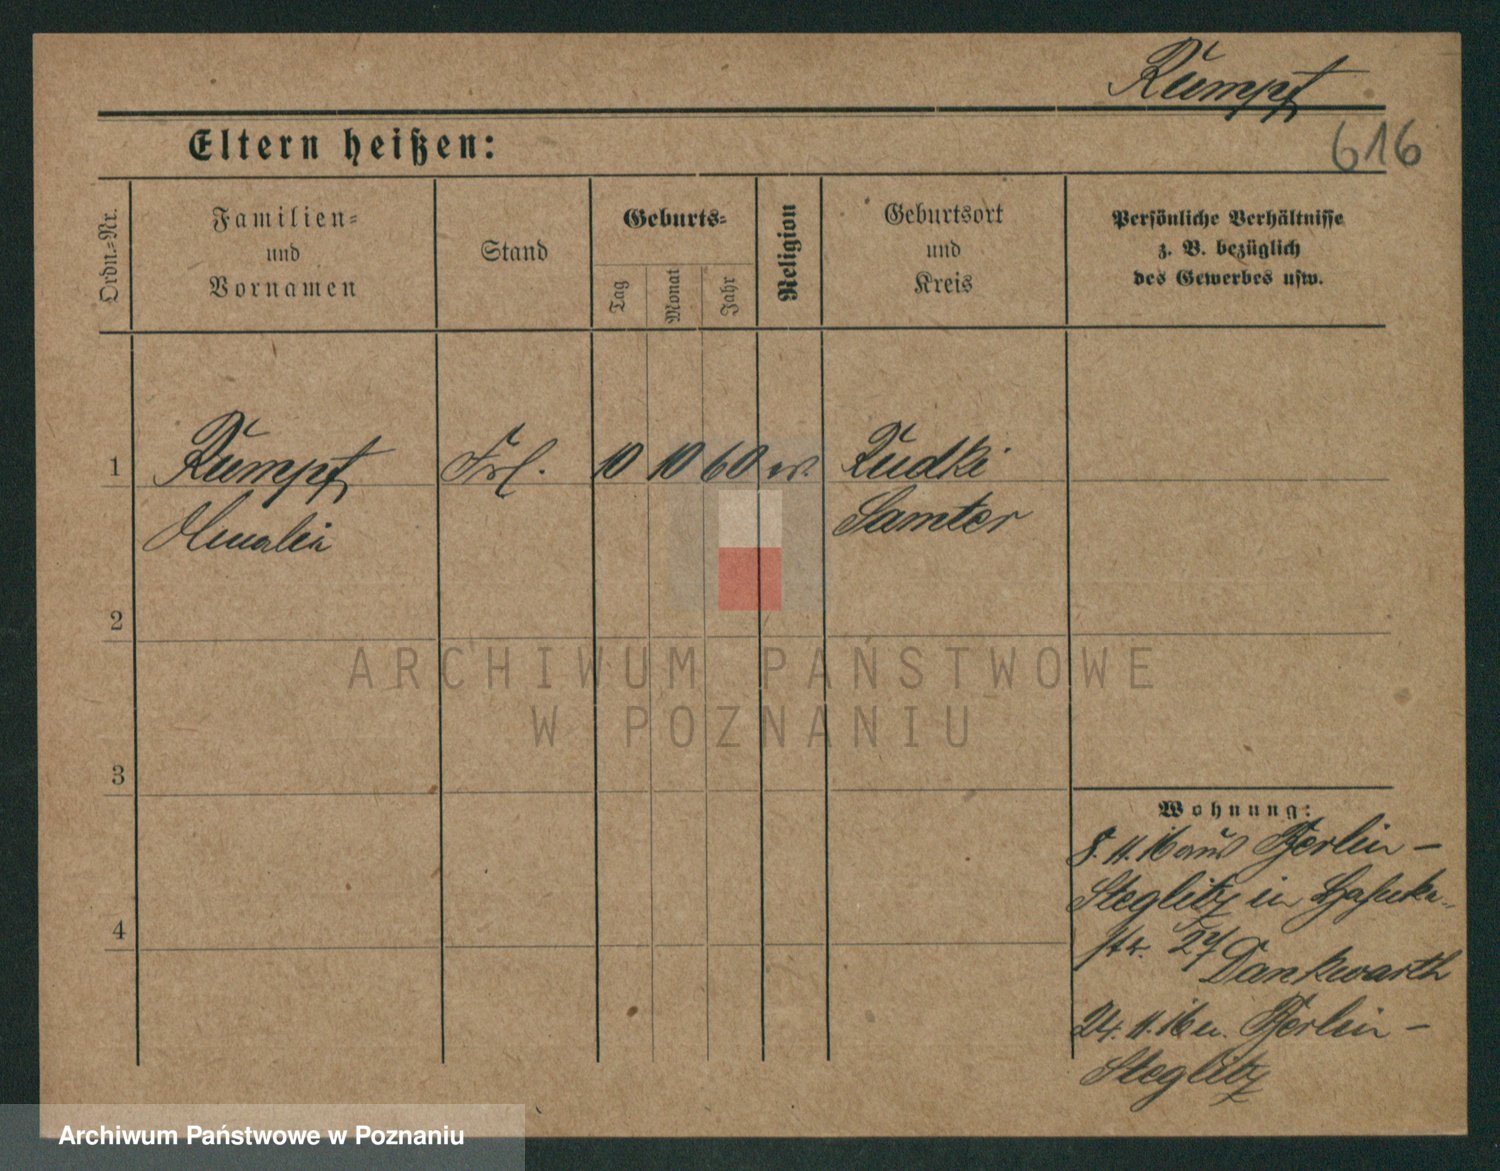 Rumpf
616
Eltern heißen:
Ordn.=Nr.
Familien=
und
Vornamen
Stand
Geburts=
Tag
Monat
Jahr
Religion
Geburtsort
und
Kreis
Persönliche Verhältnisse
z. B. bezüglich
des Gewerbes usw.
1 Rumpf Frl. 10 10 60 ev. Rudki
Amalia Samter
2
3
4
Wohnung:
8.11.16 aus Berlin –
Steglitz in
str. 27
Dankwarth
24.11.16 n. Berlin –
Steglitz
ARCHIWUM PAŃSTWOWE
W POZNANIU
Archiwum Państwowe w Poznaniu